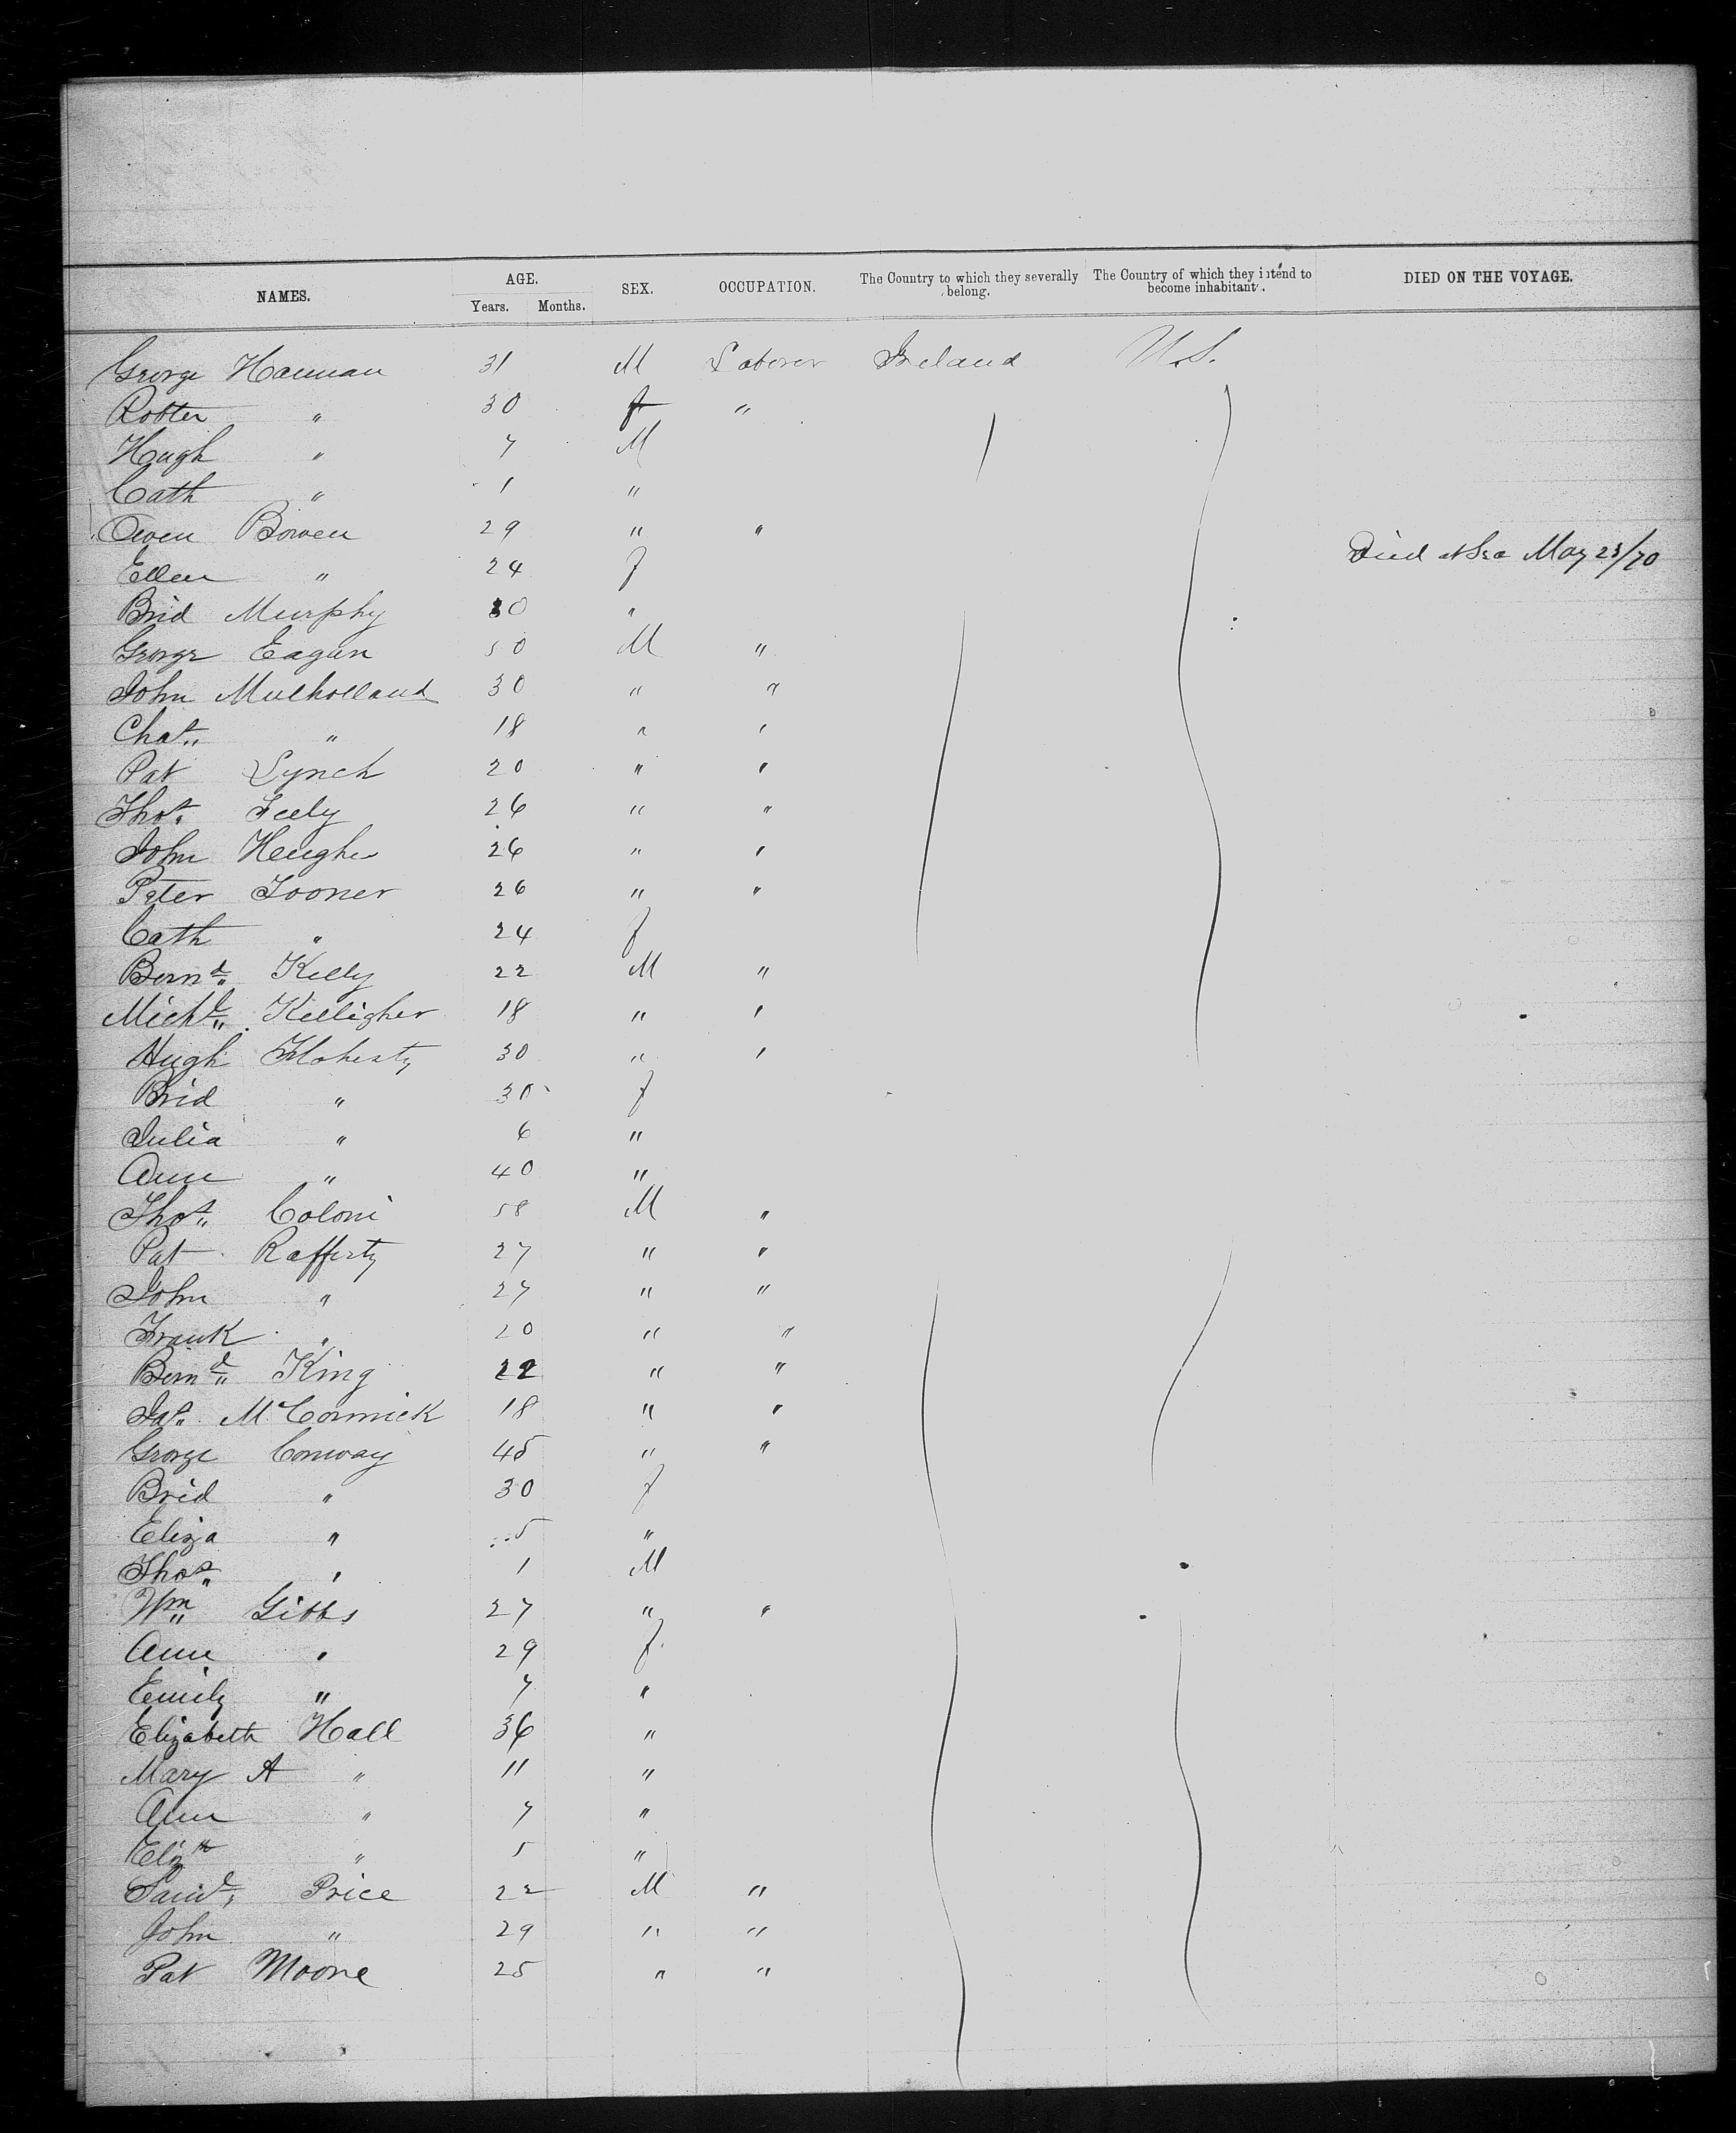 NAMES. AGE. Years. Months. SEX. OCCUPATION. The Country to which they severally belong. The Country of which they intend to become inhabitant. DIED ON THE VOYAGE.
George Hannan 31 M Laborer Ireland U.S.
" 30 f "
Hugh " 7 M
Cath " 1 "
Owen Bowen 29 " "
Ellen " 24 f Died at Sea May 23/70
Brid Murphy 30 "
George Eagan 50 M "
John Mulholland 30 " "
Chas " 18 " "
Pat Lynch 20 " "
Thos Feely 26 " "
John Hughes 26 " "
Peter 26 " "
Cath " 24 f
Bernd Kelly 22 M "
Michl Kelligher 18 " "
Hugh Flaherty 30 " "
Brid " 30 f
Julia " 6 "
Ann " 40 "
Thos Coloni 58 M "
Pat Rafferty 27 " "
John " 27 " "
Frank " 20 " "
Bernd King 22 " "
Jas McCormick 18 " "
George Conway 45 " "
Brid " 30 f
Eliza " 5 "
Thos " 1 M
Wm Gibbs 27 " "
Ann " 29 f
Emily " 7 "
Elizabeth Hall 36 "
Mary A " 11 "
Ann " 7 "
Elizth " 5 "
Price 22 M "
John " 29 " "
Pat Moore 25 " "